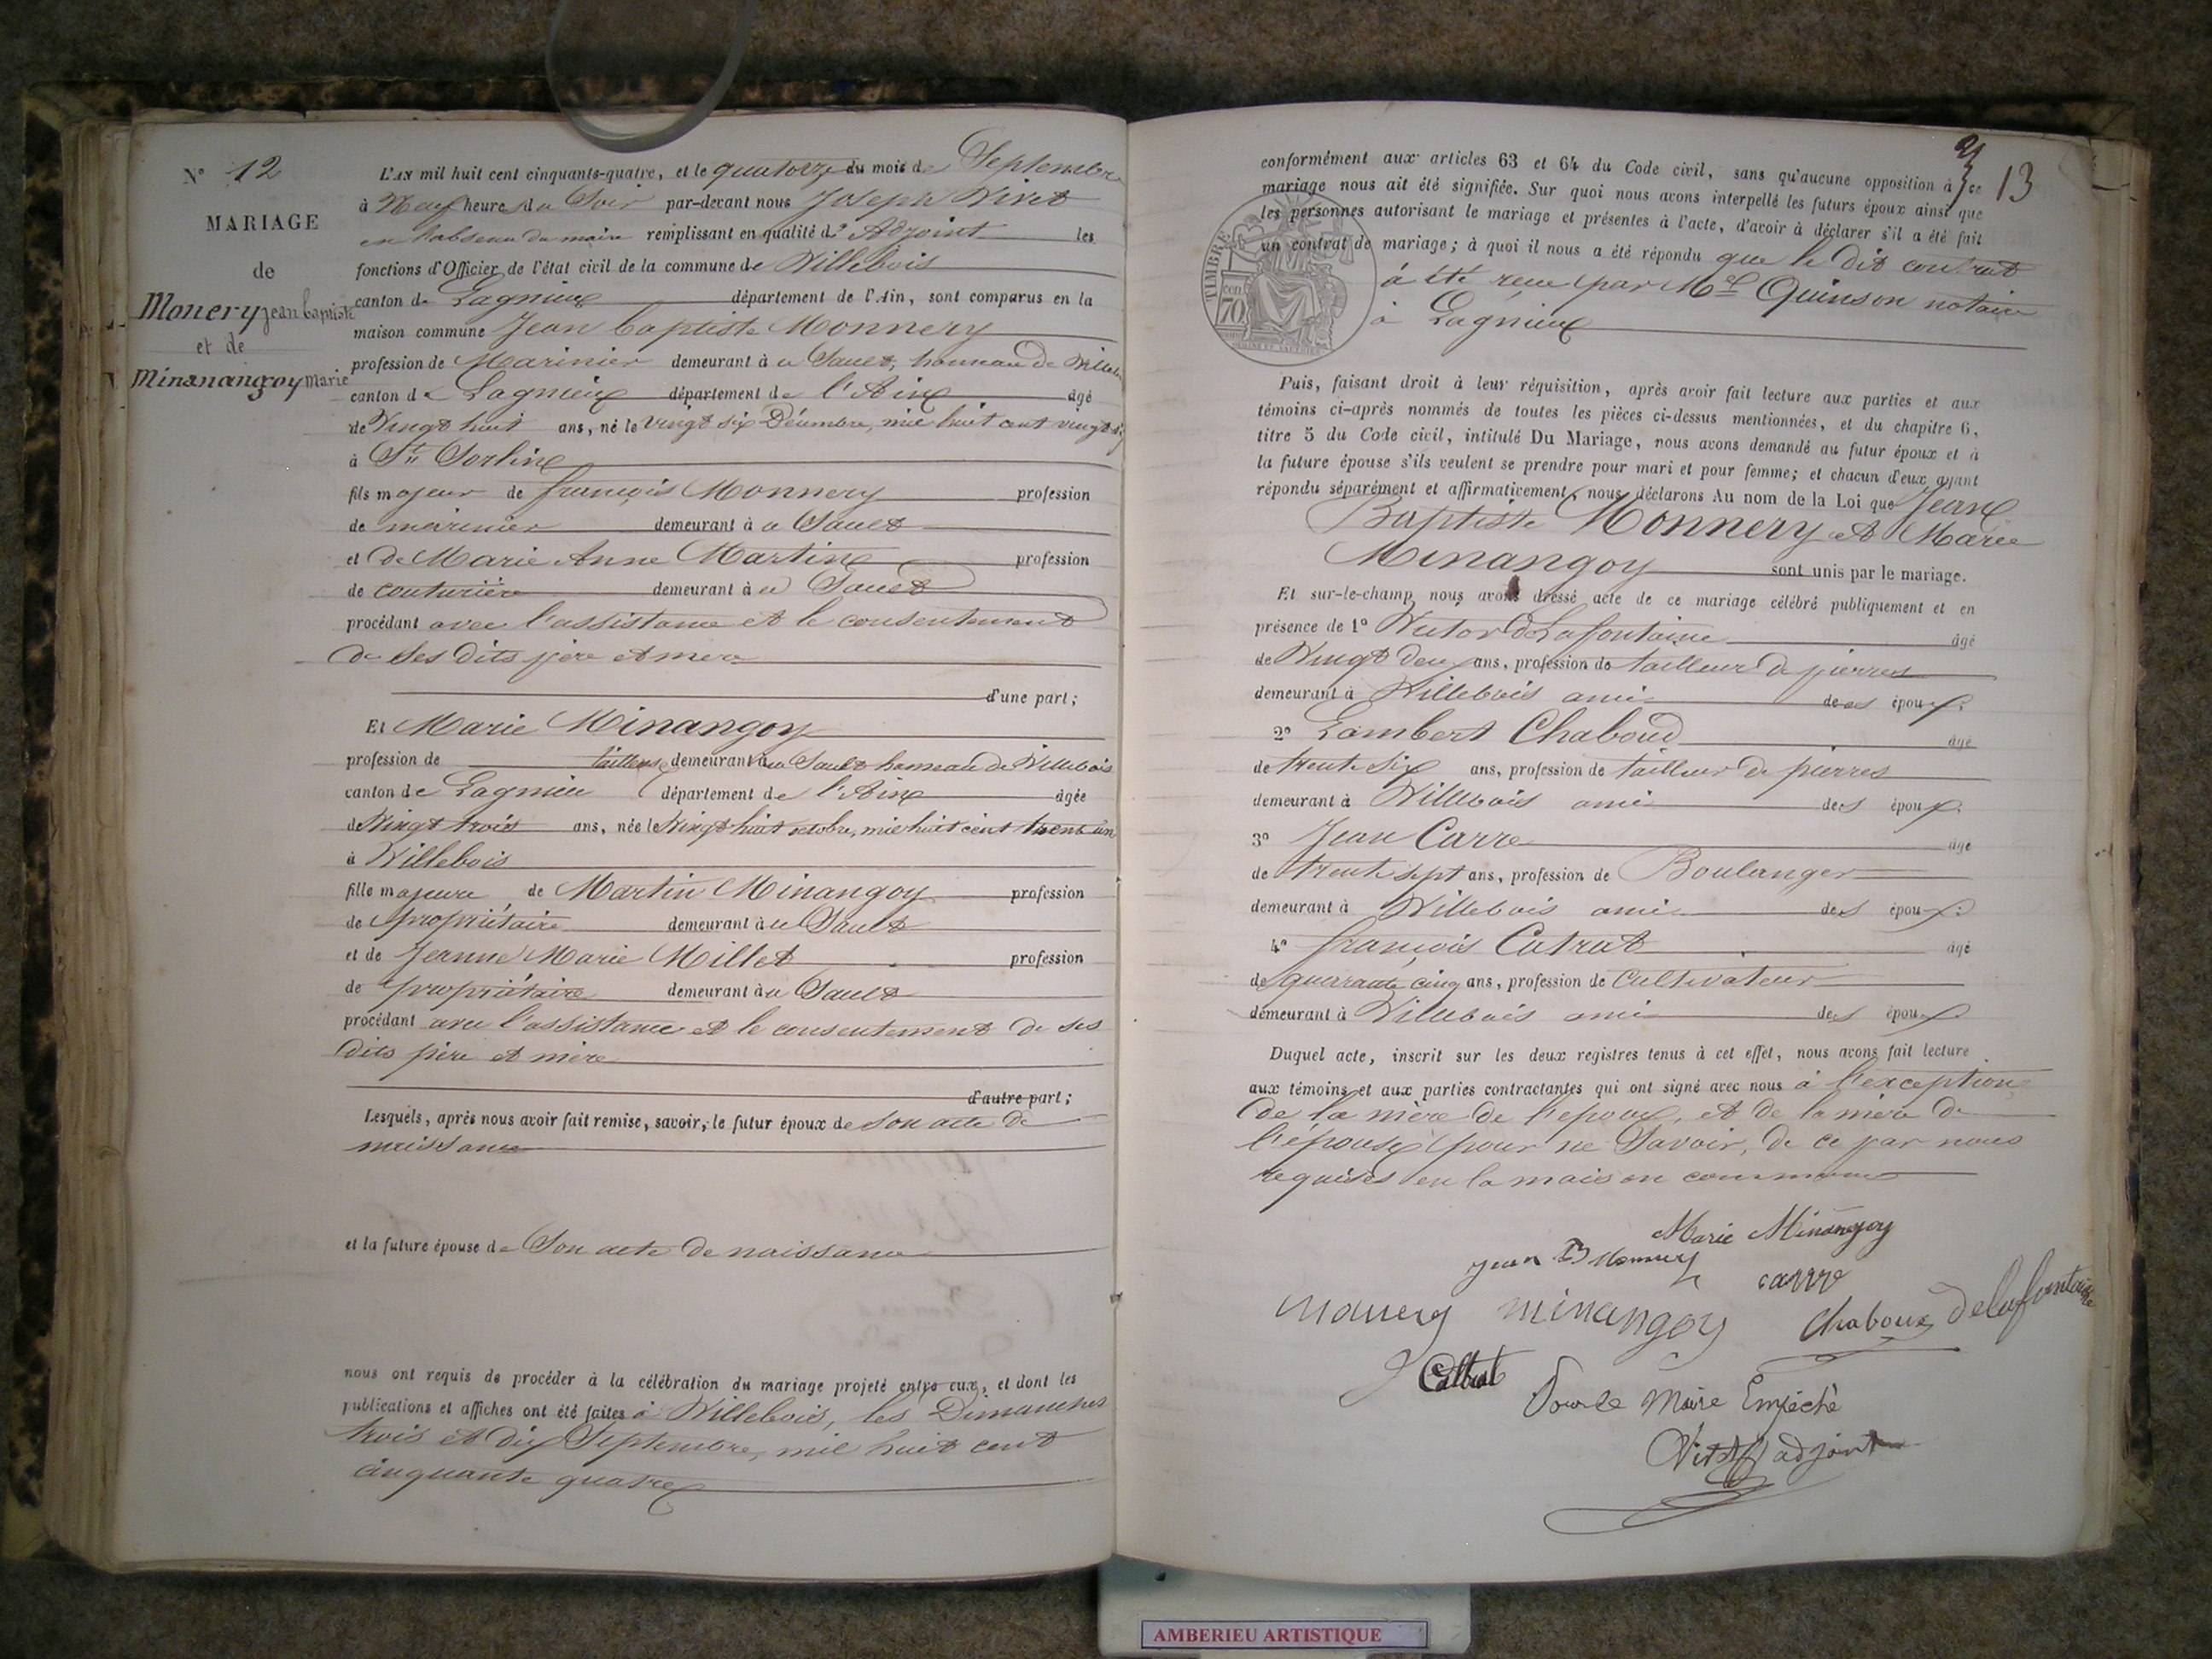 N° 12
MARIAGE
de
Monery jean baptiste
et de
Minanangoy Marie
L'AN mil huit cent cinquante-quatre, et le quatorze du mois de Septembre
à Neuf heures du Soir par-devant nous Joseph Vivet
en l'absence du maire remplissant en qualité d' Adjoint les
fonctions d'Officier de l'état civil de la commune de Villebois
canton de Lagnieu département de l'Ain, sont comparus en la
maison commune Jean baptiste Monnery
profession de Marinier demeurant à u Sault, hameau de Villebois
canton de Lagnieu département de l'Ain âgé
de Vingt huit ans, né le vingt six Décembre, mil huit cent vingt six
à St Sorlin
fils majeur de françois Monnery profession
de marinier demeurant à u Sault
et de Marie Anne Martin profession
de couturière demeurant à u Sault
procédant avec l'assistance et le consentement
de ses dits père et mère
d'une part;
Et Marie Minangoy
profession de tailleuse demeurant au Sault hameau de Villebois
canton de Lagnieu département de l'Ain âgée
de Vingt trois ans, née le Vingt huit octobre, mil huit cent trent un
à Villebois
fille majeure de Martin Minangoy profession
de propriétaire demeurant à u Sault
et de Jeanne Marie Millet profession
de propriétaire demeurant à u Sault
procédant avec l'assistance et le consentement de ses
dits père et mère
d'autre part;
Lesquels, après nous avoir fait remise, savoir, le futur époux de son acte de
naissance
et la future épouse de Son acte de naissance
nous ont requis de procéder à la célébration du mariage projeté entre eux, et dont les
publications et affiches ont été faites à Villebois, les Dimanches
trois et dix Septembre, mil huit cent
cinquante quatre
13
conformément aux articles 63 et 64 du Code civil, sans qu'aucune opposition à ce
mariage nous ait été signifiée. Sur quoi nous avons interpellé les futurs époux ainsi que
les personnes autorisant le mariage et présentes à l'acte, d'avoir à déclarer s'il a été fait
un contrat de mariage; à quoi il nous a été répondu que le dit contrat
à été reçu par Me Quinson notaire
à Lagnieu
TIMBRE
70
Puis, faisant droit à leur réquisition, après avoir fait lecture aux parties et aux
témoins ci-après nommés de toutes les pièces ci-dessus mentionnées, et du chapitre 6,
titre 5 du Code civil, intitulé Du Mariage, nous avons demandé au futur époux et à
la future épouse s'ils veulent se prendre pour mari et pour femme; et chacun d'eux ayant
répondu séparément et affirmativement, nous déclarons Au nom de la Loi que Jean
Baptiste Monnery et Marie
Minangoy sont unis par le mariage.
Et sur-le-champ nous avons dressé acte de ce mariage célébré publiquement et en
présence de 1° Victor Delafontaine âgé
de Vingt deux ans, profession de tailleur de pierres
demeurant à Villebois ami des époux.
2° Lambert Chaboud âgé
de trente six ans, profession de tailleur de pierres
demeurant à Villebois ami des époux.
3° Jean Carre âgé
de trente sept ans, profession de Boulanger
demeurant à Villebois ami des époux.
4° françois Catrat âgé
de quarante cinq ans, profession de Cultivateur
demeurant à Villebois ami des époux
Duquel acte, inscrit sur les deux registres tenus à cet effet, nous avons fait lecture
aux témoins et aux parties contractantes qui ont signé avec nous à l'exception
de la mère de l'époux, et de la mère de
l'épouse pour ne Savoir, de ce par nous
requises en la maison commune
Marie Minangoy
jean B Monnery
carre
Minangoy
Chaboux
Delafontaine
Pour le Maire Empéché
Vivet adjoint
AMBERIEU ARTISTIQUE